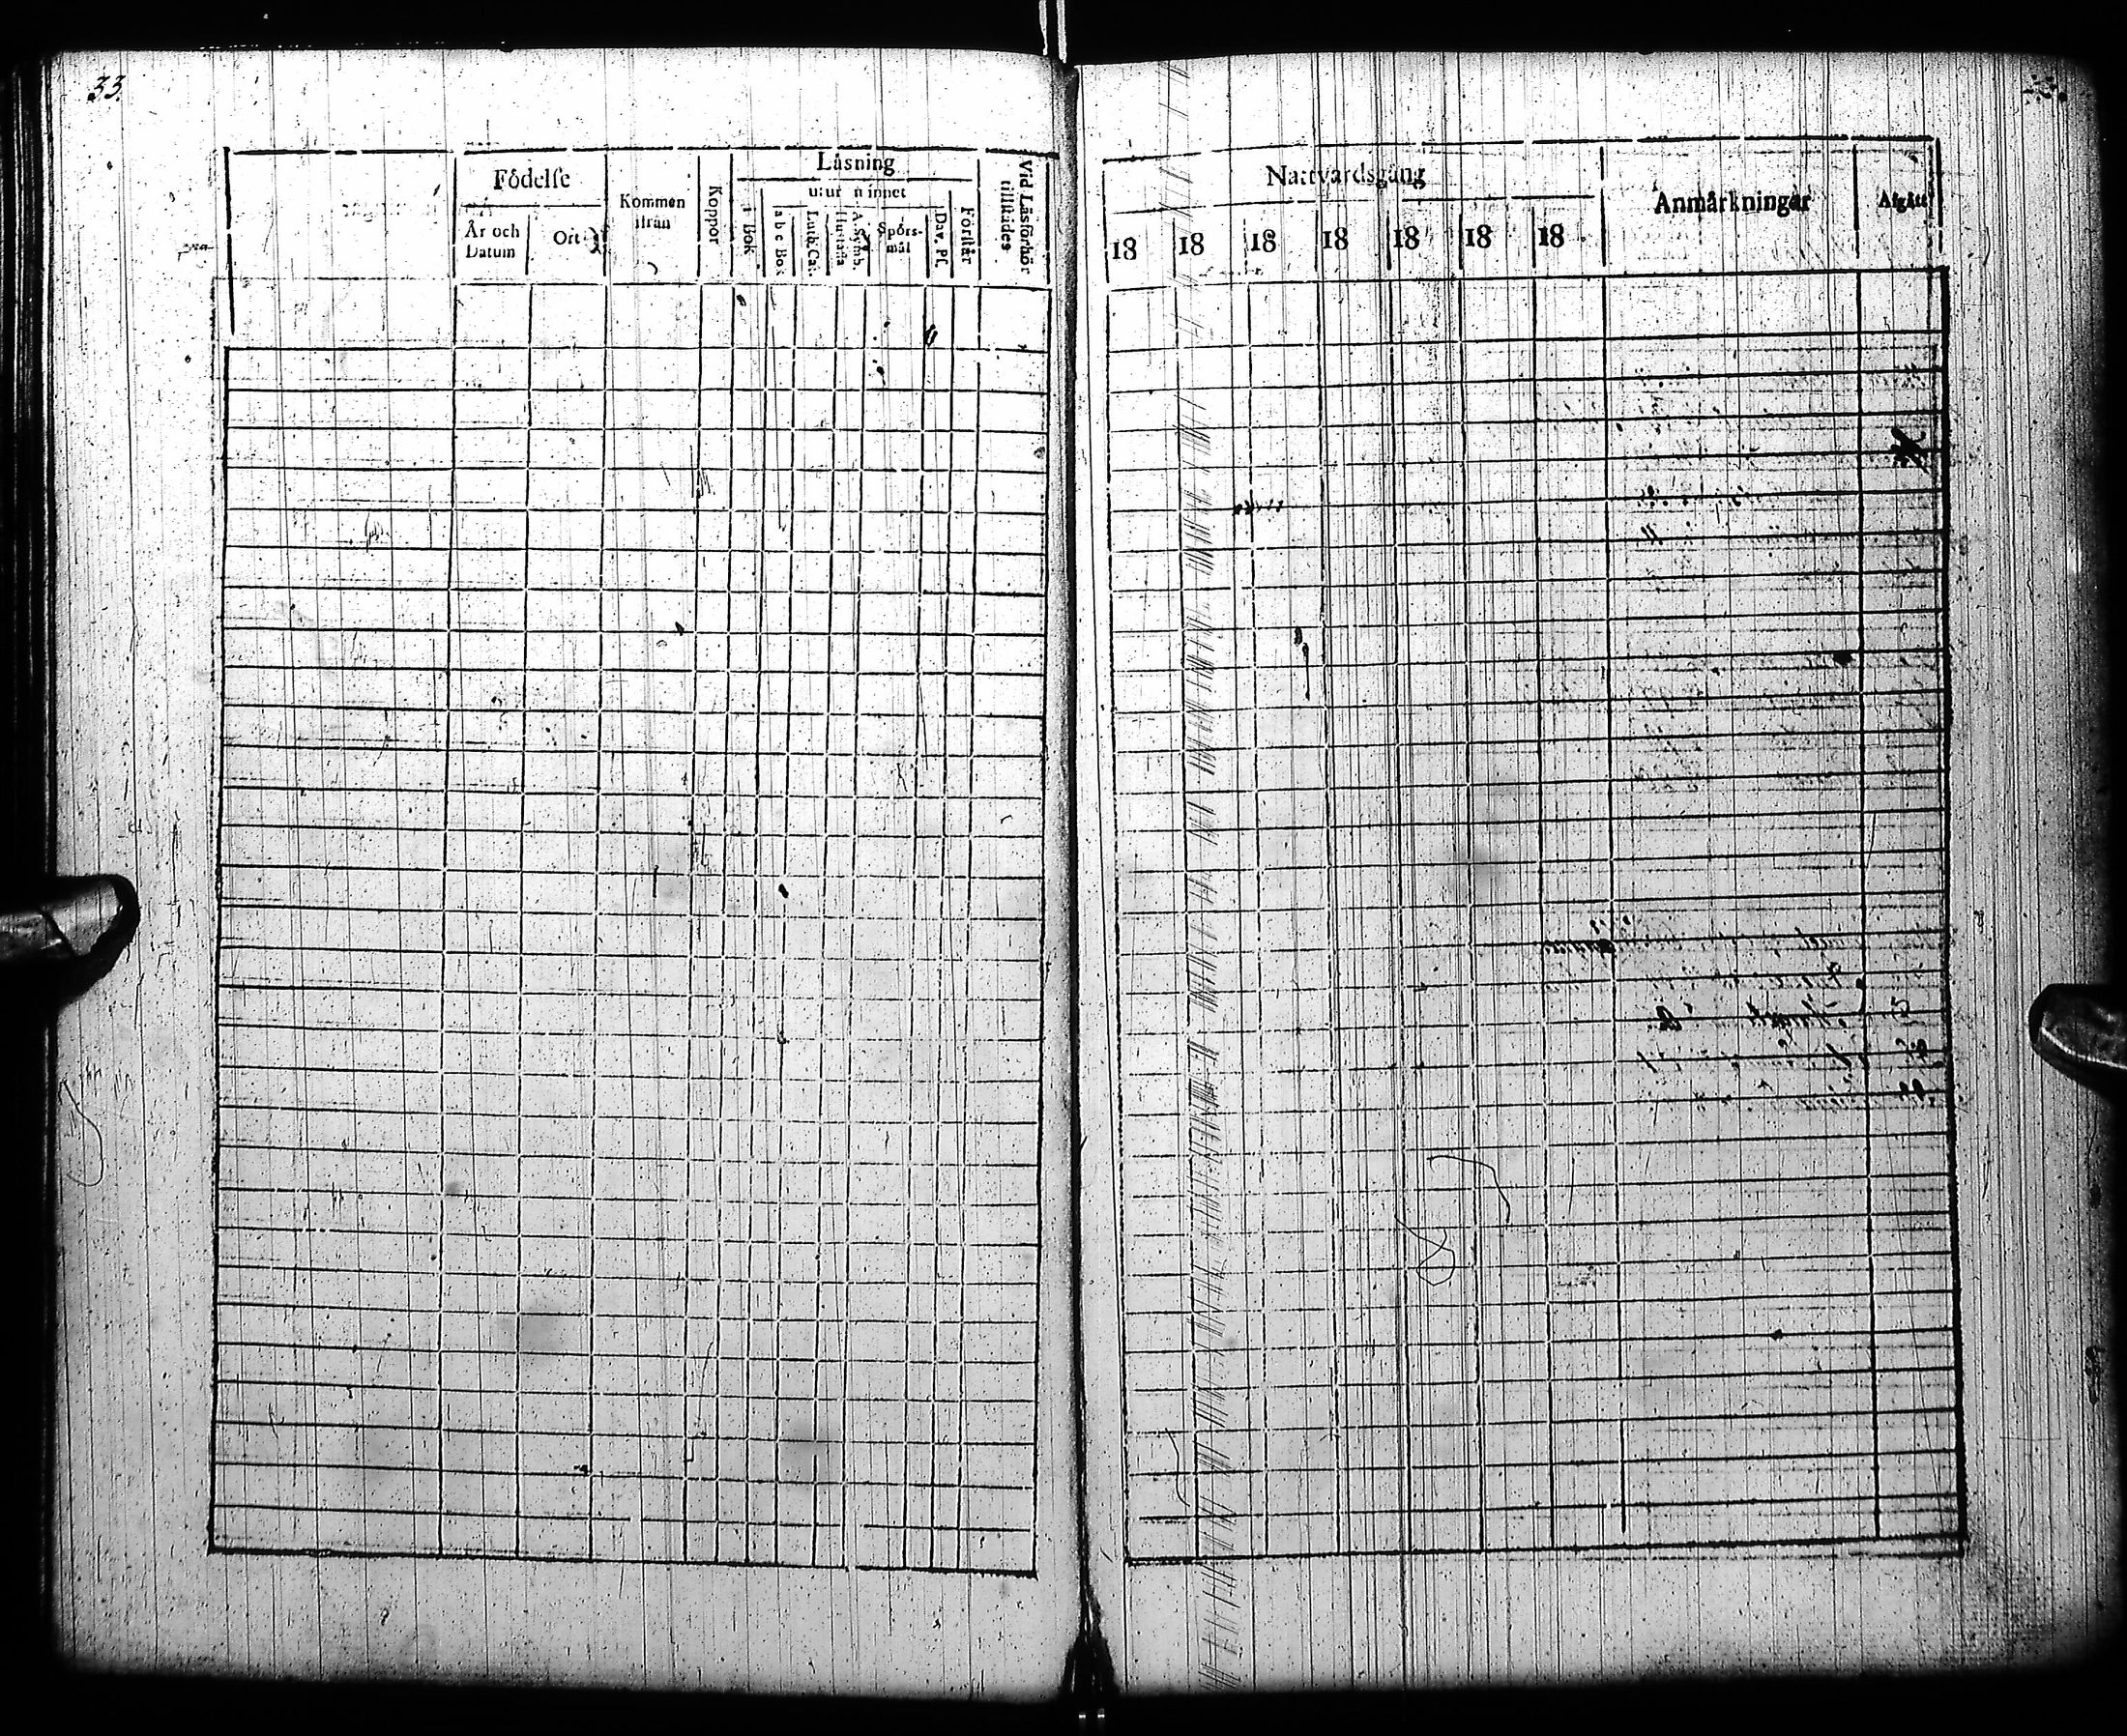 33.
Födelse
År och Datum
Ort
Kommen ifrån
Koppor
Läsning
i Bok
utur minnet
a b c Bok
Luth. Cat.
Hustafla
A. Symb.
Spörs-
mål
Dav. Ps.
Förstår
Vid Läsförhör tillstädes
Nattvardsgång
18 18 18 18 18 18 18
Anmärkningar
Afgått